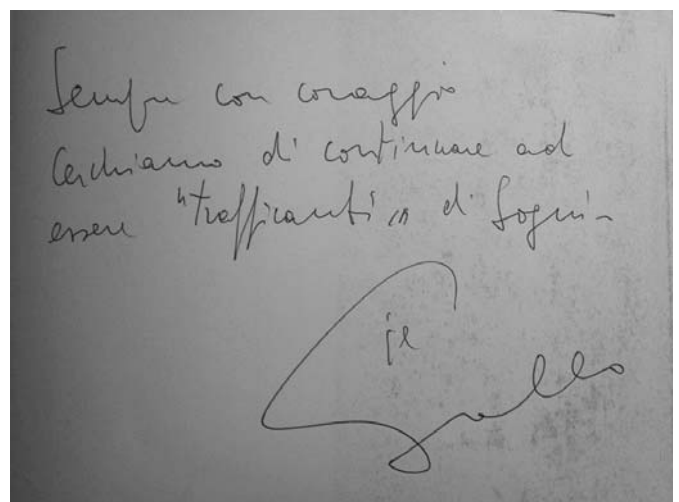 Sempre con coraggio
Cerchiamo di continuare ad
essere "trafficanti" di Sogni-
il
Gallo